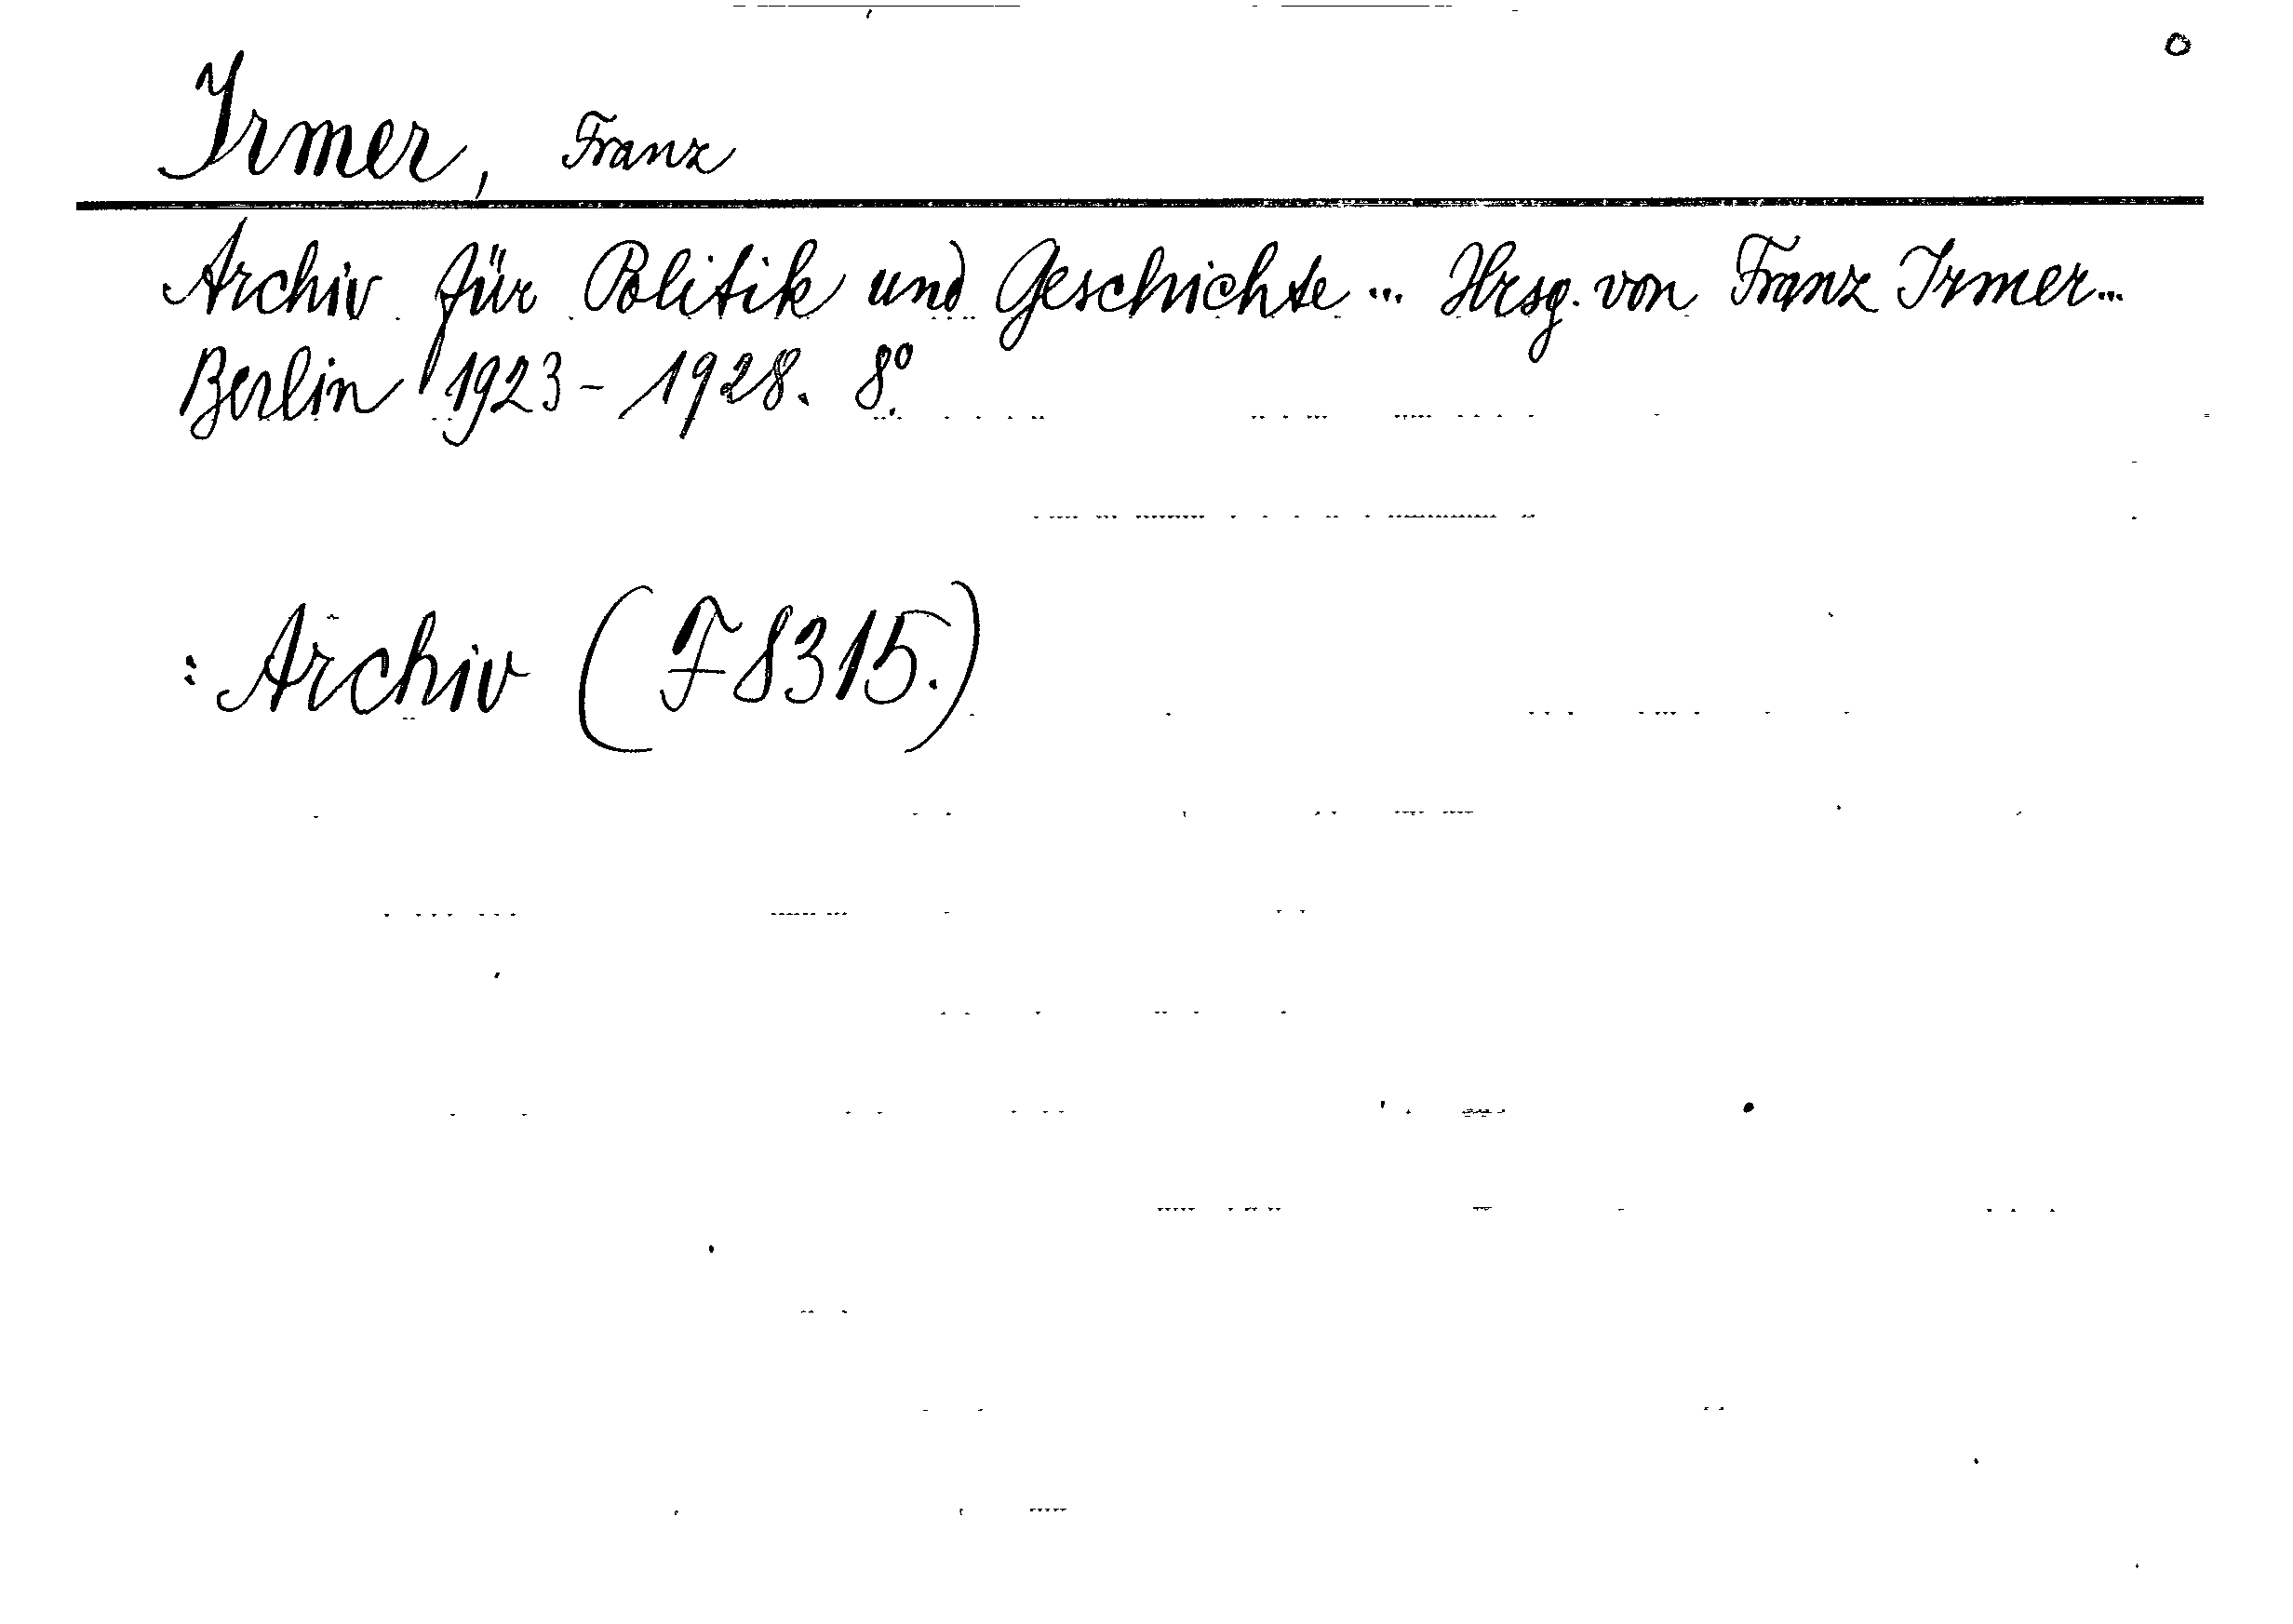 Irmer, Franz
Archiv für Politik und Geschichte ... Hrsg. von Franz Irmer...
Berlin 1923-1928. 8°.
: Archiv (F 8315.)